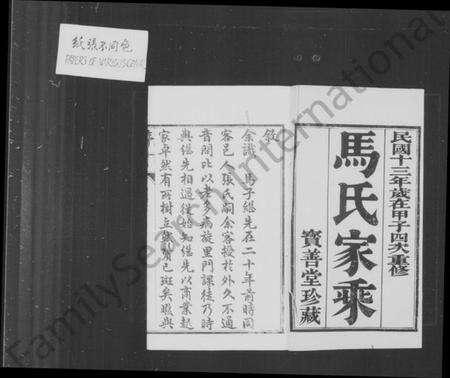 紙張不同色
PAPERS OF VARIOUS COLOR
民國十三年歲在甲子四次重修
馬氏家乘
寶善堂珍藏
敘
余識馬子繼先在二十年前時同
客邑人張氏嗣余客授於外久不通
音問比以老多病旋里門課徒乃時
與繼先相過從始知繼先以商業起
家卓然有所樹立鬚髮已斑矣暇與
FamilySearch International